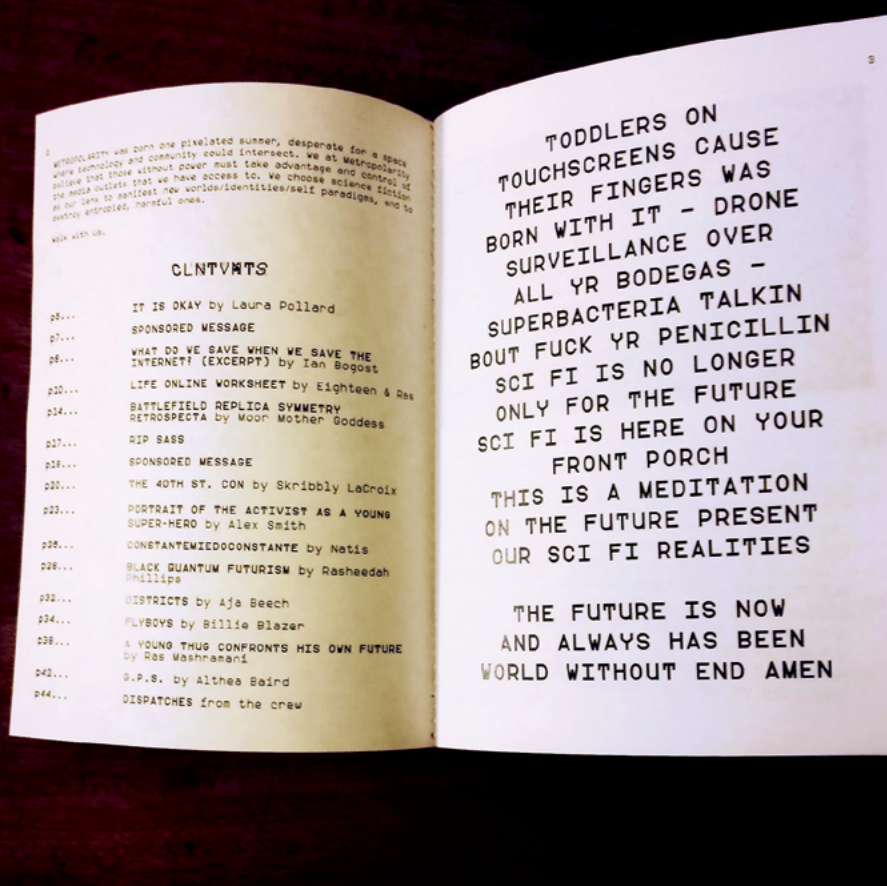 2
METROPOLARITY was born one pixelated summer, desperate for a space
where technology and community could intersect. We at Metropolarity
believe that those without power must take advantage and control of
the media outlets that we have access to. We choose science fiction
as our lens to manifest new worlds/identities/self paradigms, and to
destroy entropied, harmful ones.
walk with us.
CLNTVNTS
p5... IT IS OKAY by Laura Pollard
p7... SPONSORED MESSAGE
p8... WHAT DO WE SAVE WHEN WE SAVE THE
INTERNET? (EXCERPT) by Ian Bogost
p10... LIFE ONLINE WORKSHEET by Eighteen & Ras
p14... BATTLEFIELD REPLICA SYMMETRY
RETROSPECTA by Moor Mother Goddess
p17... RIP SASS
p18... SPONSORED MESSAGE
p20... THE 40TH ST. CON by Skribbly LaCroix
p23... PORTRAIT OF THE ACTIVIST AS A YOUNG
SUPER-HERO by Alex Smith
p26... CONSTANTEMIEDOCONSTANTE by Natis
p28... BLACK QUANTUM FUTURISM by Rasheedah
Phillips
p32... DISTRICTS by Aja Beech
p34... FLYBOYS by Billie Blazer
p38... A YOUNG THUG CONFRONTS HIS OWN FUTURE
by Ras Mashramani
p42... G.P.S. by Althea Baird
p44... DISPATCHES from the crew
3
TODDLERS ON
TOUCHSCREENS CAUSE
THEIR FINGERS WAS
BORN WITH IT - DRONE
SURVEILLANCE OVER
ALL YR BODEGAS -
SUPERBACTERIA TALKIN
BOUT FUCK YR PENICILLIN
SCI FI IS NO LONGER
ONLY FOR THE FUTURE
SCI FI IS HERE ON YOUR
FRONT PORCH
THIS IS A MEDITATION
ON THE FUTURE PRESENT
OUR SCI FI REALITIES
THE FUTURE IS NOW
AND ALWAYS HAS BEEN
WORLD WITHOUT END AMEN